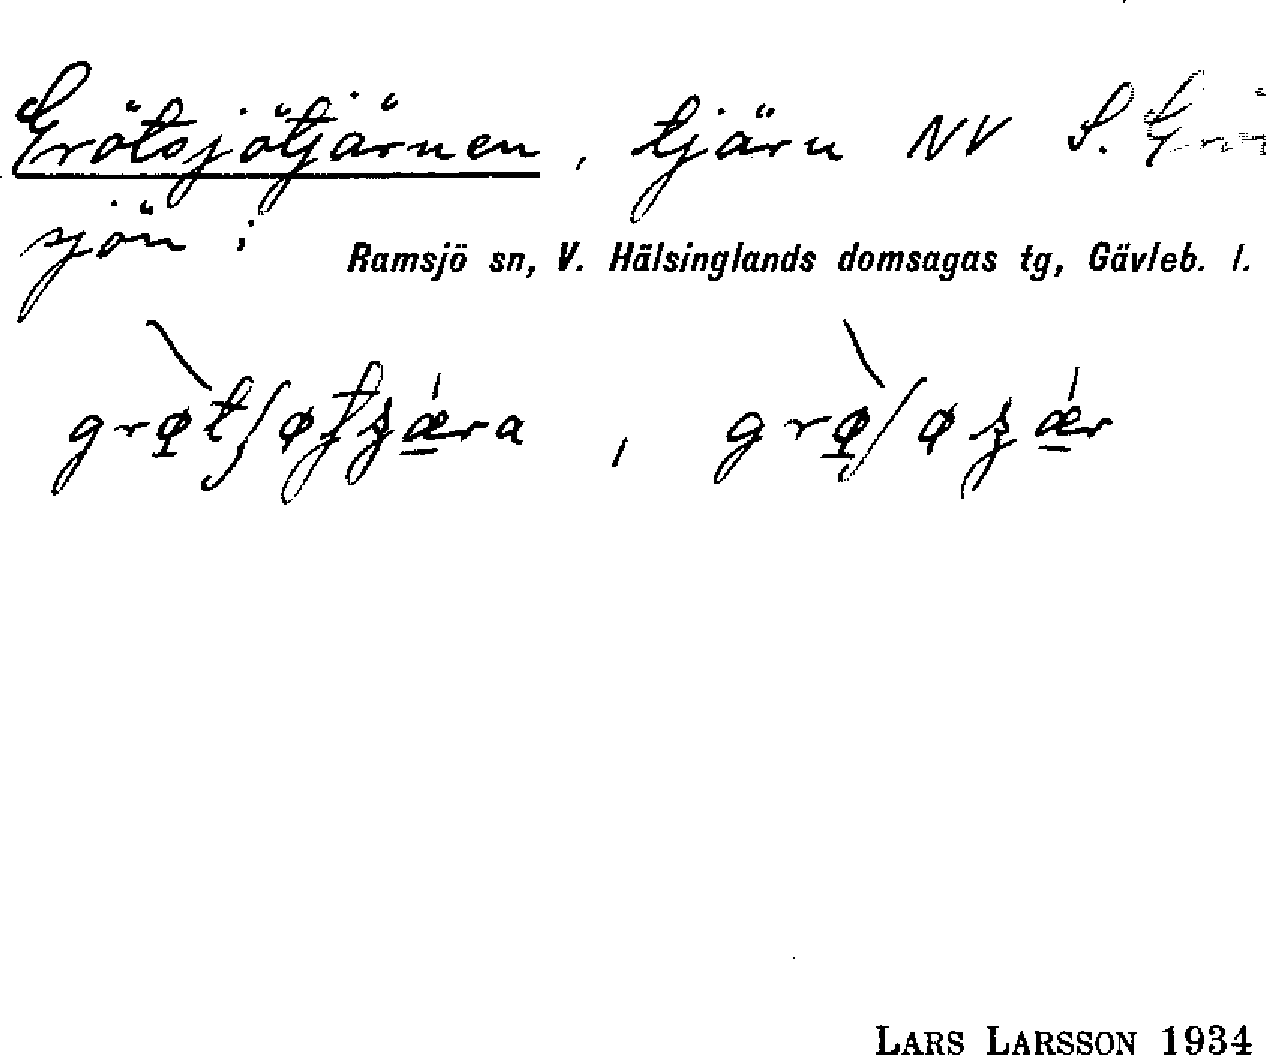 Grötsjötjärnen, tjärn NV S.
sjön i
Ramsjö sn, V. Hälsinglands domsagas tg, Gävleb. l.
LARS LARSSON 1934